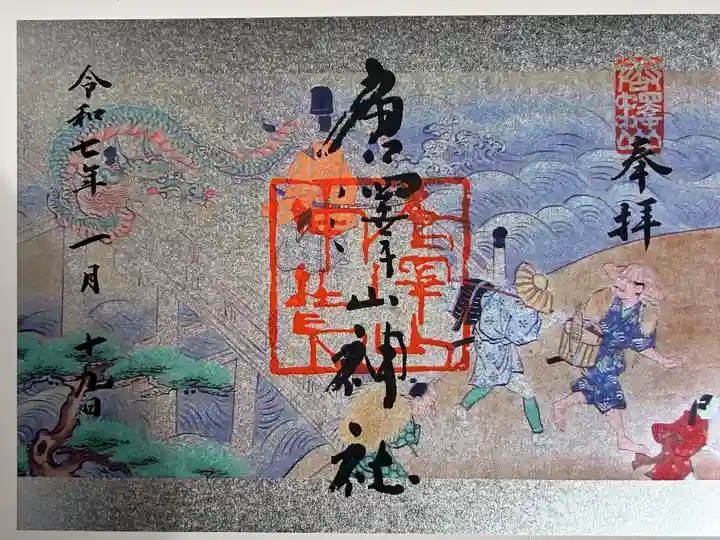 奉拝
唐澤山
唐澤山神社
唐澤山神社
令和七年 一月 十九日